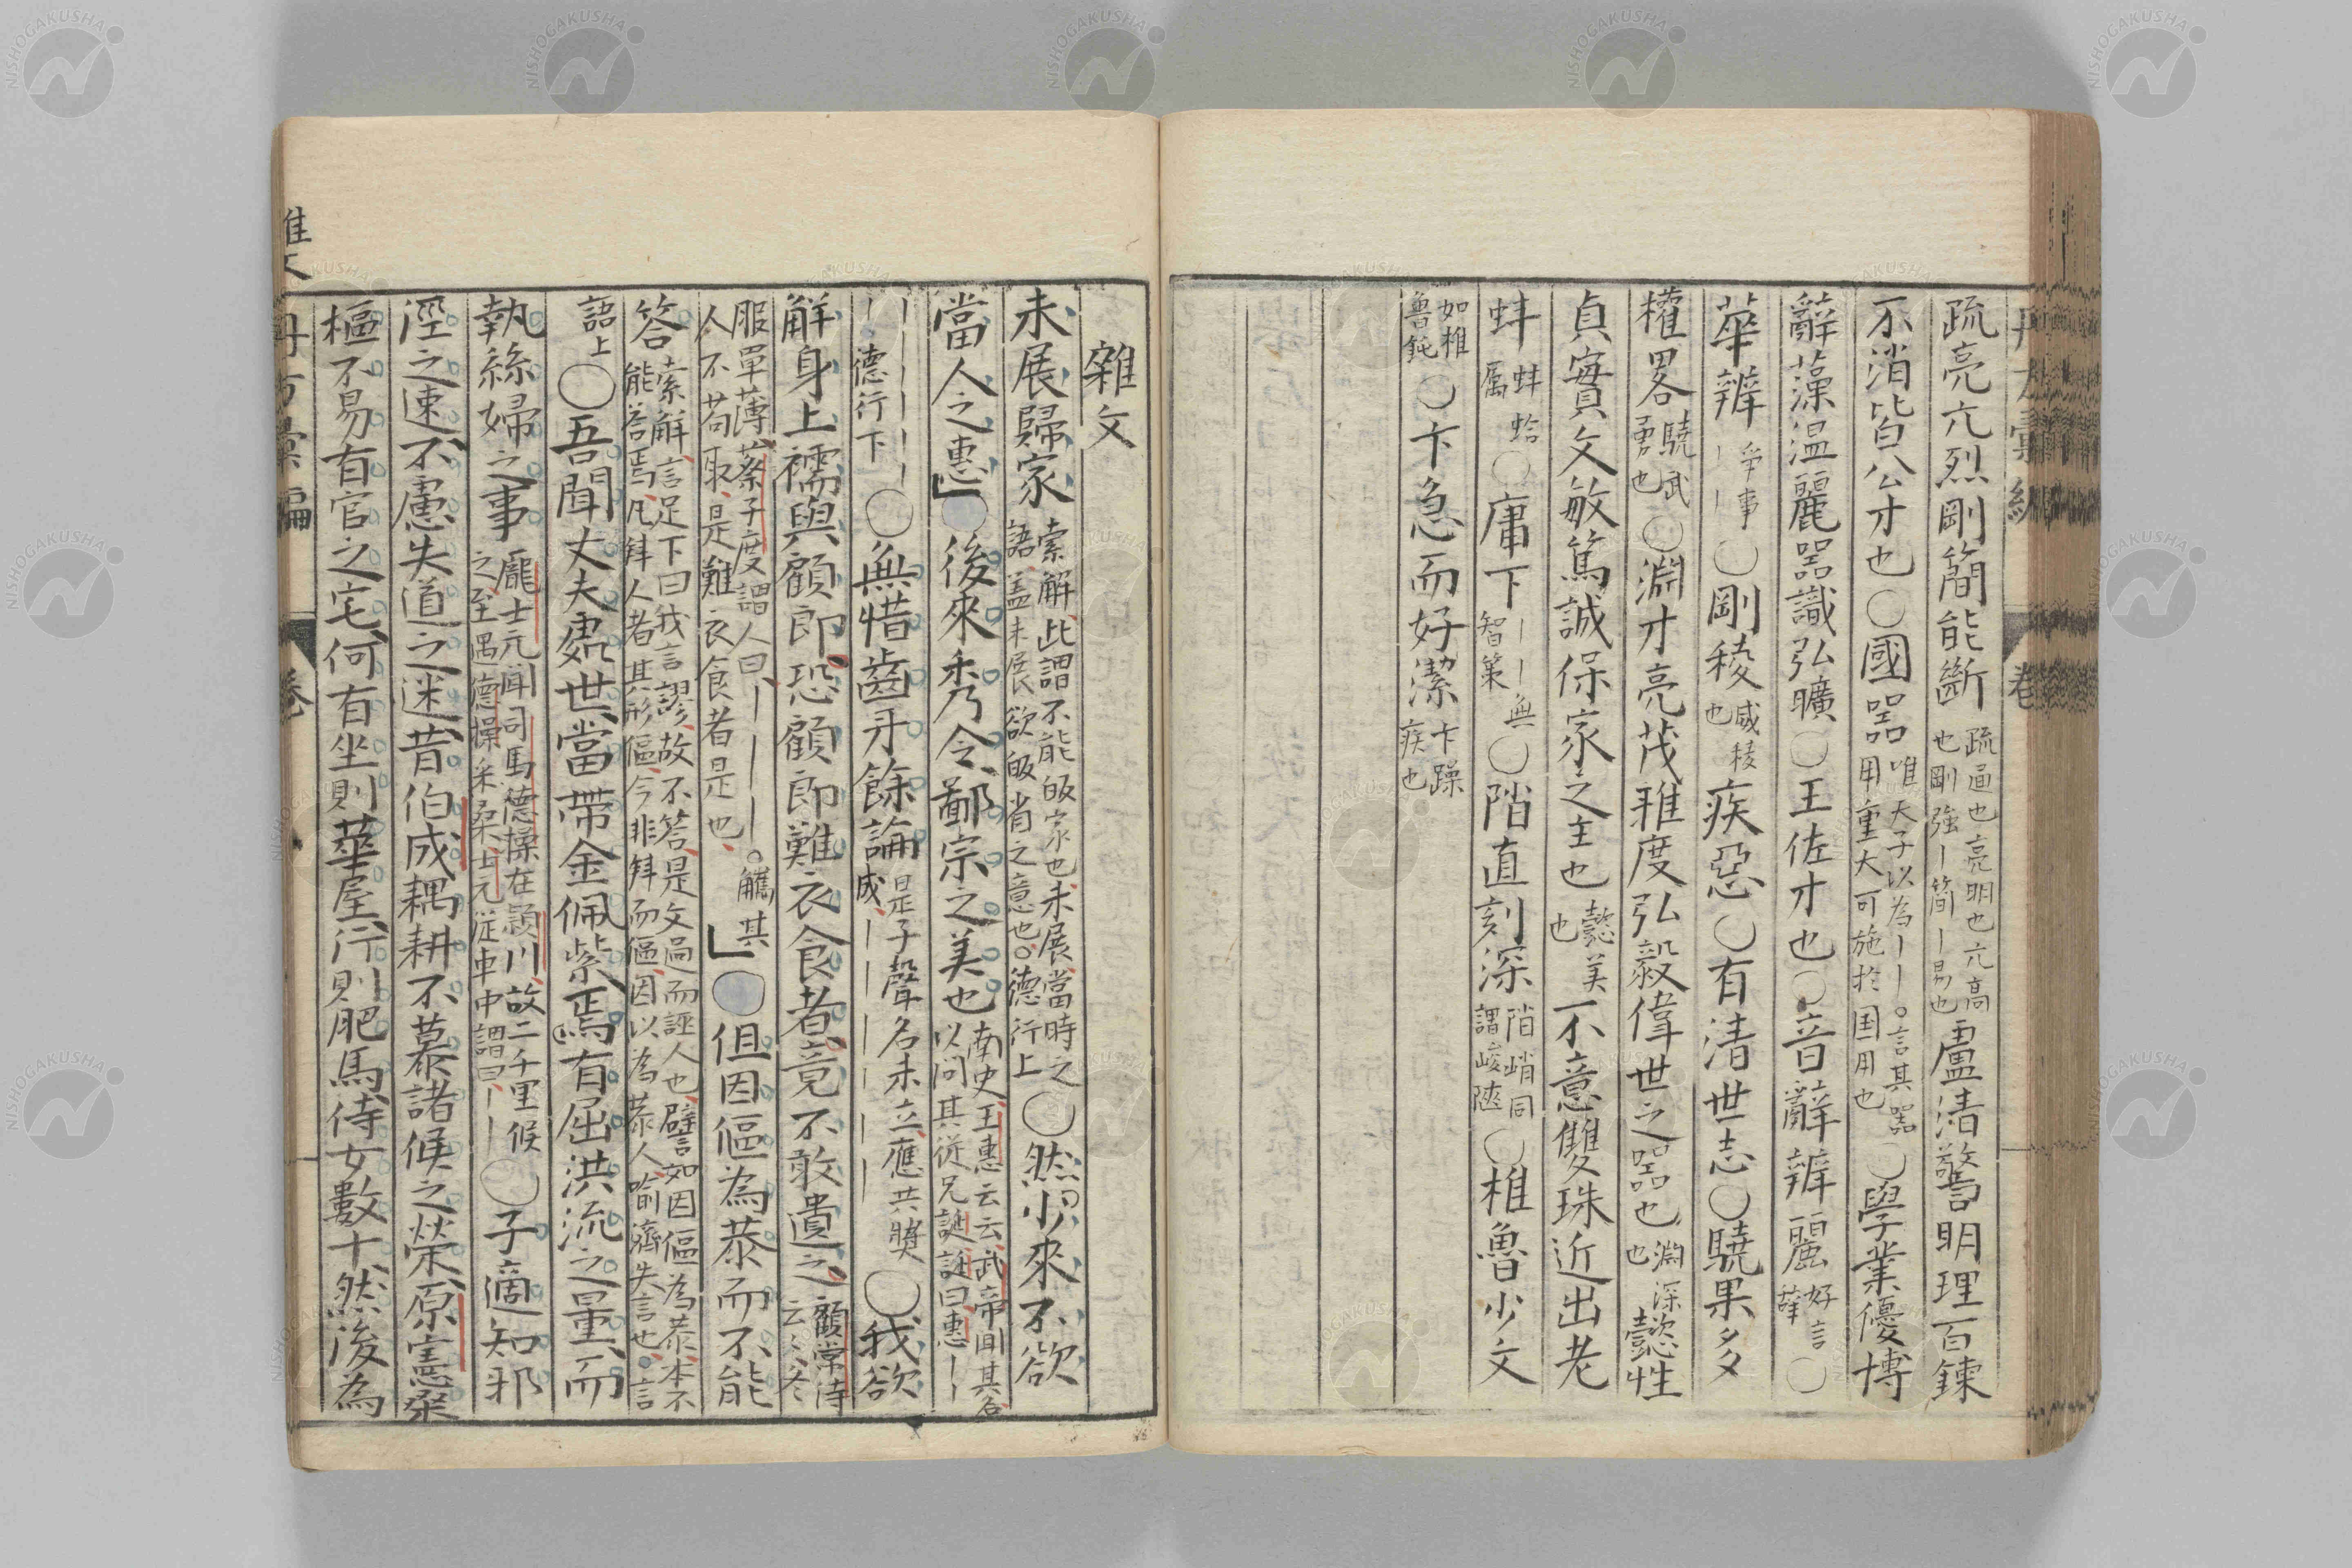 疏亮亢烈剛簡能斷 疏通也亮明也亢高也剛強—簡—易也 盧清警明理百鍊
不消皆公才也〇國器 唯天子以為——。言其器用重大可施於国用也 〇學業優博
辭藻温麗器識弘曠〇王佐才也〇音辭辨麗 好言辭 〇
華辨 爭事—— 〇剛稜 威稜也 疾惡〇有清世志〇驍果多
權畧 驍武勇也 〇淵才亮茂雅度弘毅偉世之器也 淵深也 懿性
貞實文敏篤誠保家之主也 懿美也 不意雙珠近出老
蚌 蚌蛤屬 〇庸下 ——無智策 〇陗直刻深 陗峭同謂峻陿 〇椎魯少文
如椎魯鈍 〇卞急而好潔 卞躁疾也
雜文
未展歸家 索解、此謂不能皈家也、未展、當時之語、蓋未展欲皈省之意也。德行上 〇然少來不欲
當人之惠」〇後來秀令、鄱宗之美也 南史、王惠云云、武帝聞其名以問其從兄誕、誕曰惠—
—————德行下 〇無惜齒牙餘論 是子聲名未立、應共獎成、———— 〇我欲
解身上襦與顧郎、恐顧郎難衣食者、竟不敢遺之、 顧常侍云々、冬
服單薄、蔡子度謂人曰、————。觿其人不苟取、是難衣食者是也、 」〇但因傴為恭而不能
答 索解、言足下曰我言謬、故不答、是文過而誣人也、譬如因傴為恭、本不能答焉、凡拜人者其形傴、今非拜而傴、因以為恭人、喻濟失言也。言
語上 〇吾聞丈夫處世、當帶金佩紫、焉有屈洪流之量、而
執絲婦之事 龐士元聞司馬德操在潁川、故二千里候之、至遇德操采桑、士元從車中謂曰、—— 〇子適知邪
徑之速、不慮失道之迷、昔伯成耦耕、不慕諸候之榮、原憲桑
樞、不易有官之宅、何有坐則華屋、行則肥馬、侍女數十、然後為